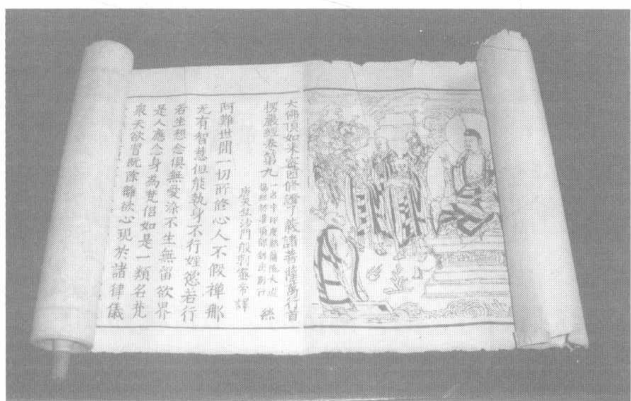 大佛頂如來密因修證了義諸菩薩萬行首
楞嚴經卷第九
一名中印度那蘭陀大道
場經於灌頂部錄出別行
唐天竺沙門般剌密帝譯
阿難世間一切所修心人不假禪那
无有智慧但能執身不行婬慾若行
若坐想念俱無愛染不生無留欲界
是人應念身為梵侶如是一類名梵
衆天欲習既除離欲心現於諸律儀